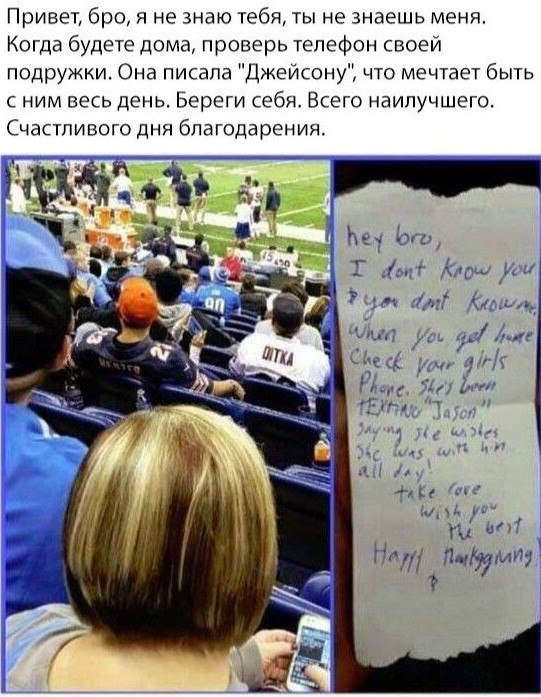 Привет, бро, я не знаю тебя, ты не знаешь меня.
Когда будете дома, проверь телефон своей
подружки. Она писала "Джейсону", что мечтает быть
с ним весь день. Береги себя. Всего наилучшего.
Счастливого дня благодарения.
90
DITKA
HESTER
23
hey bro,
I dont know you
& you dont know me.
when you get home
Check your girls
Phone. She's been
TEXTING "Jason"
Saying she wishes
She was with him
all day!
take care
Wish you
the best
Happy Thanksgiving